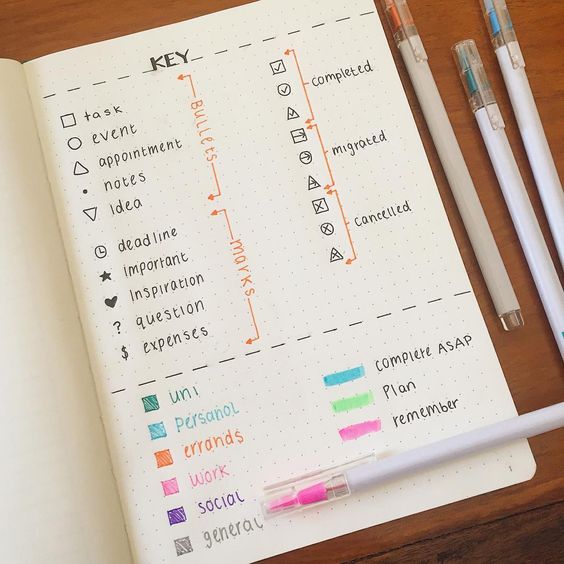 KEY
task
event
appointment
notes
Idea
Bullets
deadline
important
Inspiration
? question
$ expenses
marks
completed
migrated
Cancelled
uni
Personal
errands
work
social
general
complete ASAP
Plan
remember